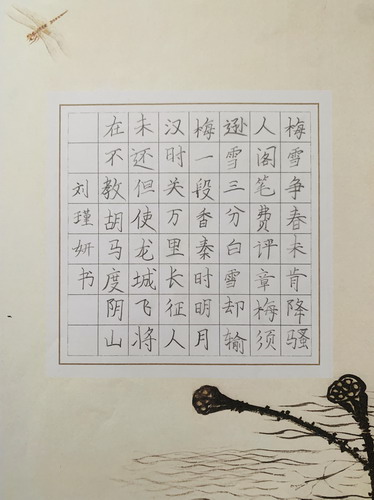 梅雪争春未肯降骚
人阁笔费评章梅须
逊雪三分白雪却输
梅一段香秦时明月
汉时关万里长征人
未还但使龙城飞将
在不教胡马度阴山
刘瑾妍书